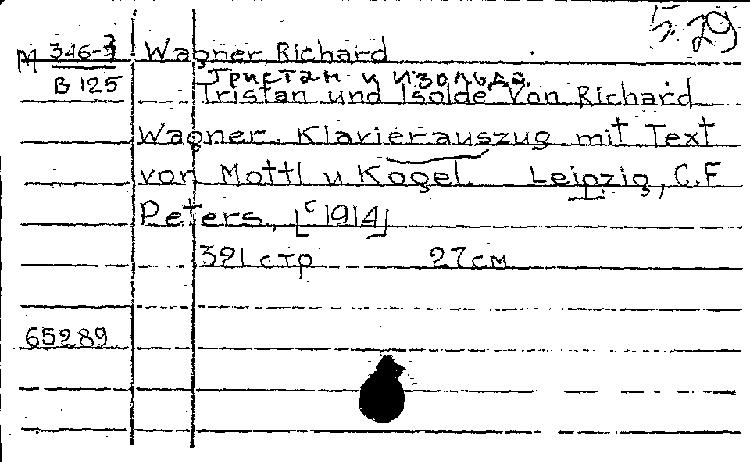 5.29
М 346-3 Wagner Richard
В 125 Тристан и Изольда.
Tristan und Isolde Von Richard
Wagner. Klavierauszug mit Text
von Mottl u Kogel. Leipzig, C.F
Peters, [c 1914]
391 стр 27 см
65289